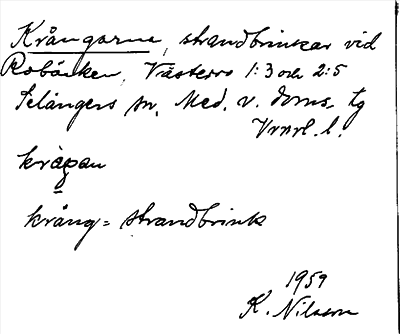 Krångarne, strandbrinkar vid
Robäcken, Västerro 1:3 och 2:5
Selångers sn, Med. v. doms. tg
Vrnrl. l.
kråɡan
krång = strandbrink
1959
K. Nilsson